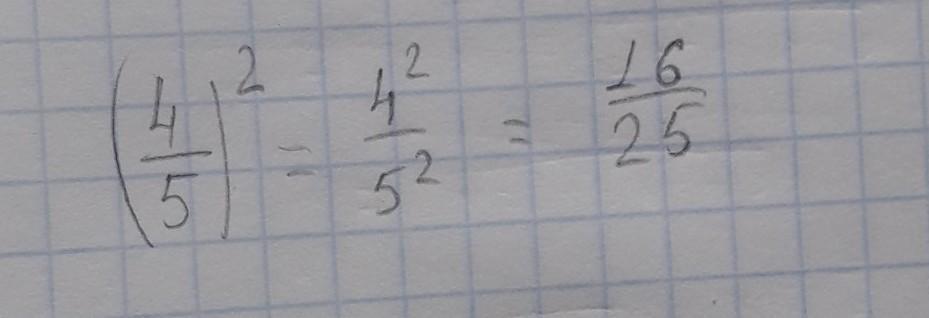 (4/5)² = 4²/5² = 16/25